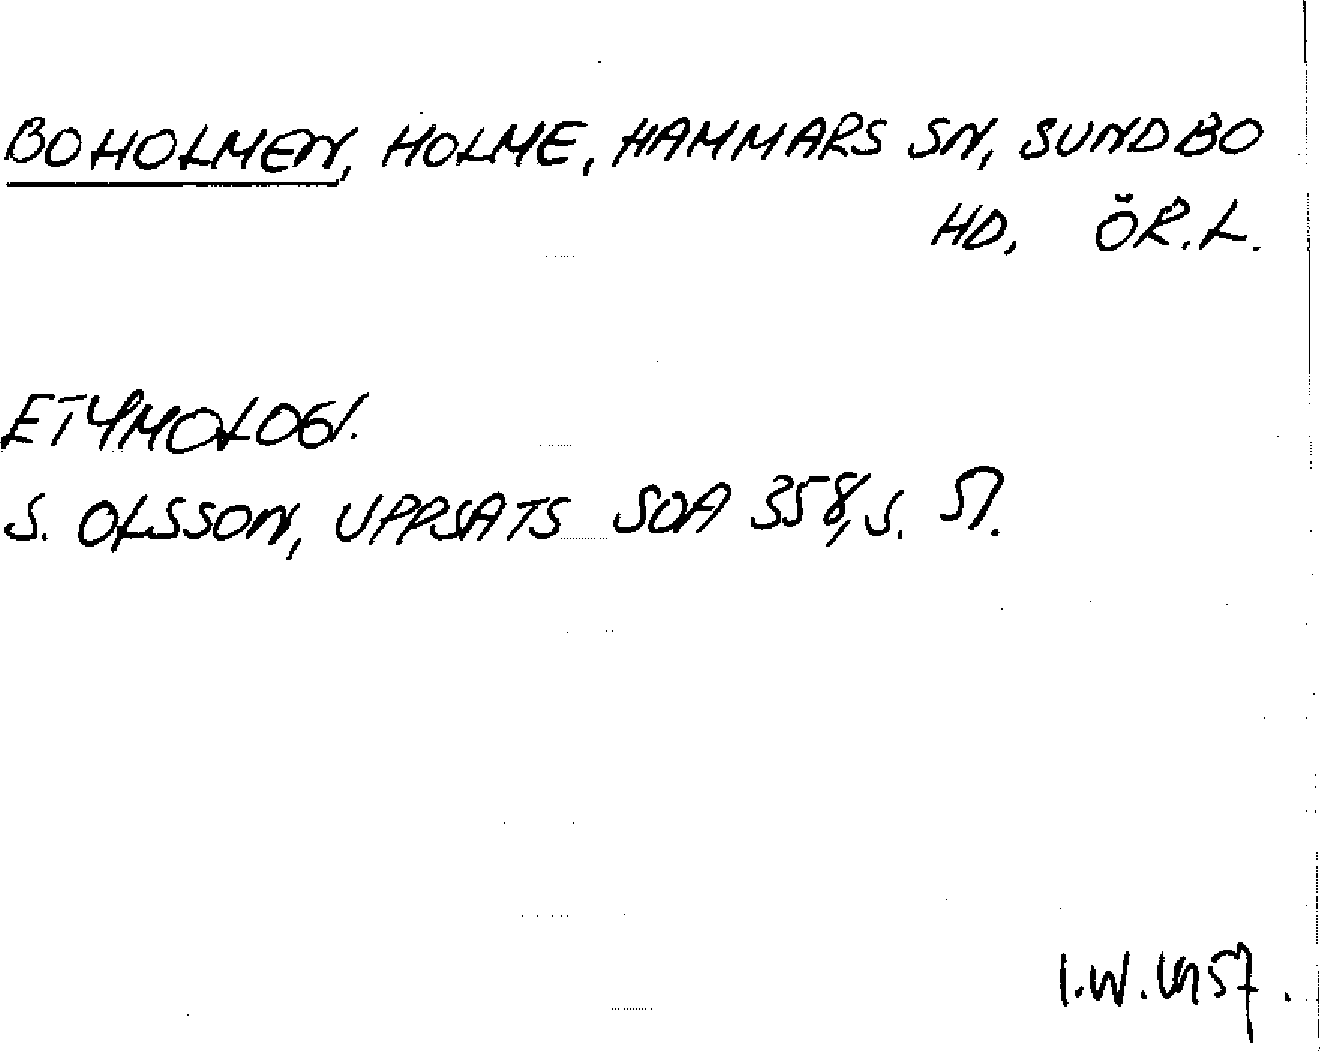 BOHOLMEN, HOLME, HAMMARS SN, SUNDBO
HD, ÖR.L.
ETYMOLOGI.
S. OLSSON, UPPSATS SOA 358, S. 51.
I.W. 1957.